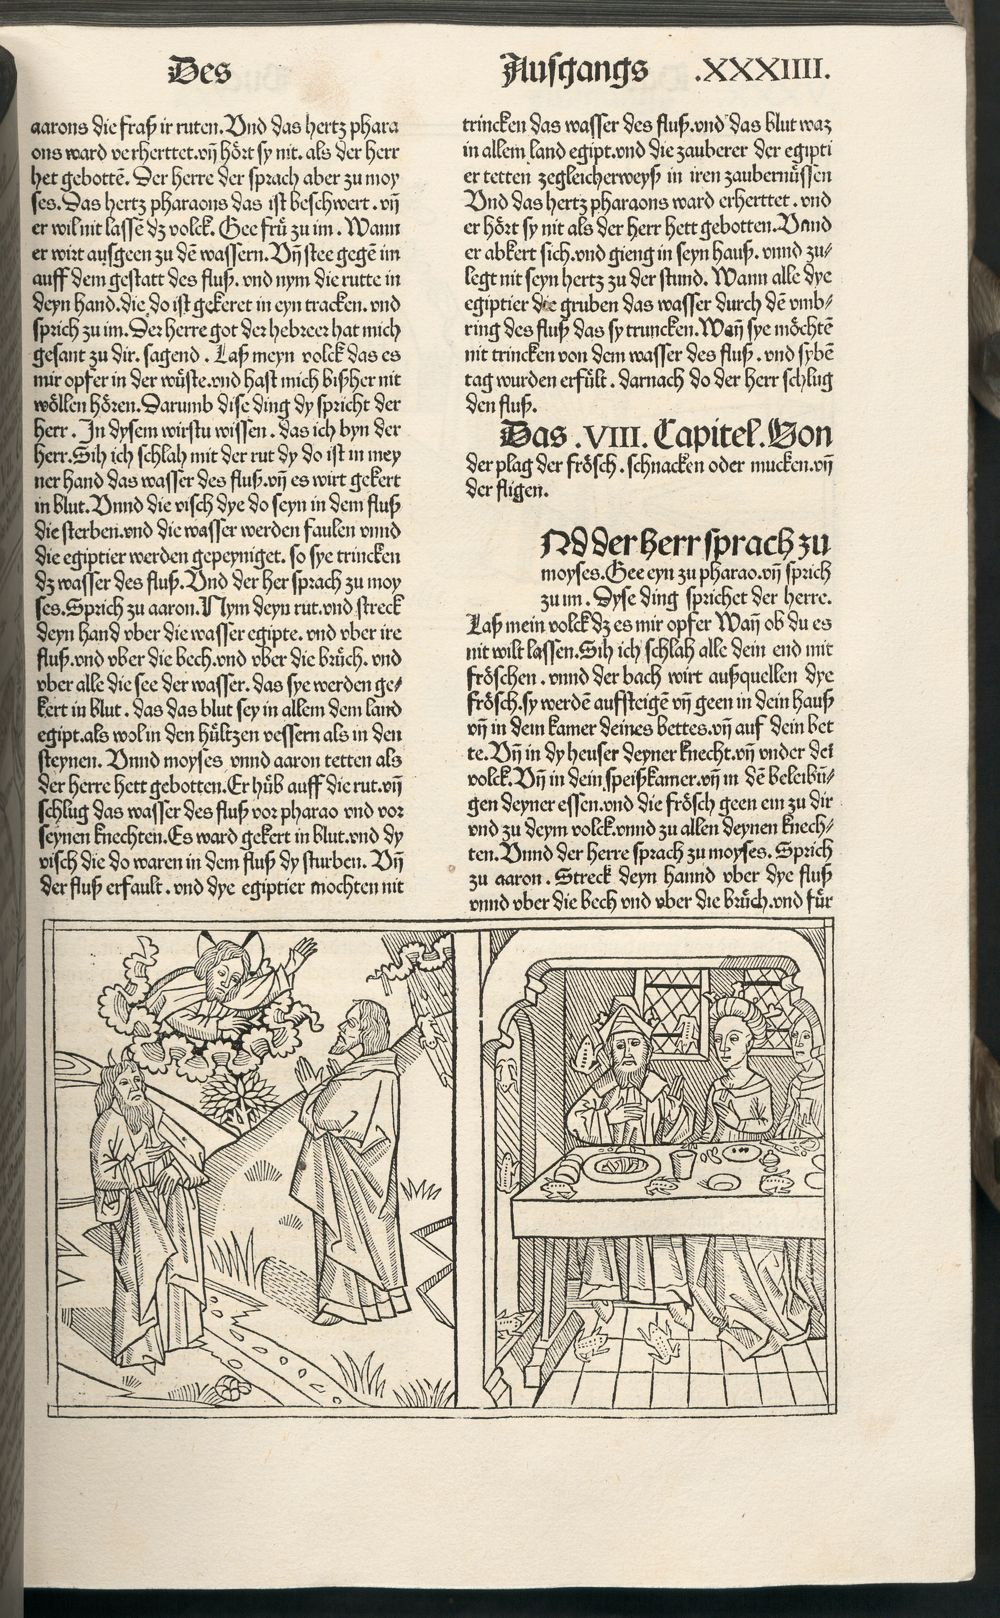 Des
Ausgangs .XXXIIII.
aarons die fraß ir ruten. Vnd das hertz phara
ons ward verherttet. vñ hört sy nit. als der herr
het gebottē. Der herre der sprach aber zu moy
ses. Das hertz pharaons das ist beschwert. vñ
er wil nit lassē dz volck. Gee frü zu im. Wann
er wirt ausgeen zu dē wassern. Vñ stee gegē im
auff dem gestatt des fluß. vnd nym die rutte in
deyn hand. die do ist gekeret in eyn tracken. vnd
sprich zu im. Der herre got der hebreer hat mich
gesant zu dir. sagend. Laß meyn volck das es
mir opfer in der wüste. vnd hast mich bißher nit
wöllen hören. Darumb dise ding dy spricht der
herr. In dysem wirstu wissen. das ich byn der
herr. Sih ich schlah mit der rut dy do ist in mey
ner hand das wasser des fluß. vñ es wirt gekert
in blut. Vnnd die visch dye do seyn in dem fluß
die sterben. vnd die wasser werden faulen vnnd
die egiptier werden gepeyniget. so sye trincken
dz wasser des fluß. Vnd der her sprach zu moy
ses. Sprich zu aaron. Nym deyn rut. vnd streck
deyn hand vber die wasser egipte. vnd vber ire
fluß. vnd vber die bech. vnd vber die brüch. vnd
vber alle die see der wasser. das sye werden ge⸗
kert in blut. das das blut sey in allem dem land
egipt. als wol in den hültzen vessern als in den
steynen. Vnnd moyses vnnd aaron tetten als
der herre hett gebotten. Er hüb auff die rut. vñ
schlug das wasser des fluß vor pharao vnd vor
seynen knechten. Es ward gekert in blut. vnd dy
visch die do waren in dem fluß dy sturben. Vñ
der fluß erfault. vnd dye egiptier mochten nit
trincken das wasser des fluß. vnd das blut waz
in allem land egipt. vnd die zauberer der egipti
er tetten zegleicherweyß in iren zaubernüssen
Vnd das hertz pharaons ward erherttet. vnd
er hört sy nit als der herr hett gebotten. Vnnd
er abkert sich. vnd gieng in seyn hauß. vnnd zu⸗
legt nit seyn hertz zu der stund. Wann alle dye
egiptier die gruben das wasser durch dē vmb⸗
ring des fluß das sy truncken. Wañ sye möchtē
nit trincken von dem wasser des fluß. vnd sybē
tag wurden erfült. darnach do der herr schlug
den fluß.
Das .VIII. Capitel. Von
der plag der frösch. schnacken oder mucken. vñ
der fligen.
Nd der herr sprach zu
moyses. Gee eyn zu pharao. vñ sprich
zu im. Dyse ding sprichet der herre.
Laß mein volck dz es mir opfer Wañ ob du es
nit wilt lassen. Sih ich schlah alle dein end mit
fröschen. vnnd der bach wirt außquellen dye
frösch. sy werdē auffsteigē vñ geen in dein hauß
vñ in dein kamer deines bettes. vñ auf dein bet
te. Vñ in dy heuser deyner knecht. vñ vnder dei
volck. Vñ in dein speißkamer. vñ in dē beleibū⸗
gen deyner essen. vnd die frösch geen ein zu dir
vnd zu deym volck. vnnd zu allen deynen knech⸗
ten. Vnnd der herre sprach zu moyses. Sprich
zu aaron. Streck deyn hannd vber dye fluß
vnnd vber die bech vnd vber die brüch. vnd für